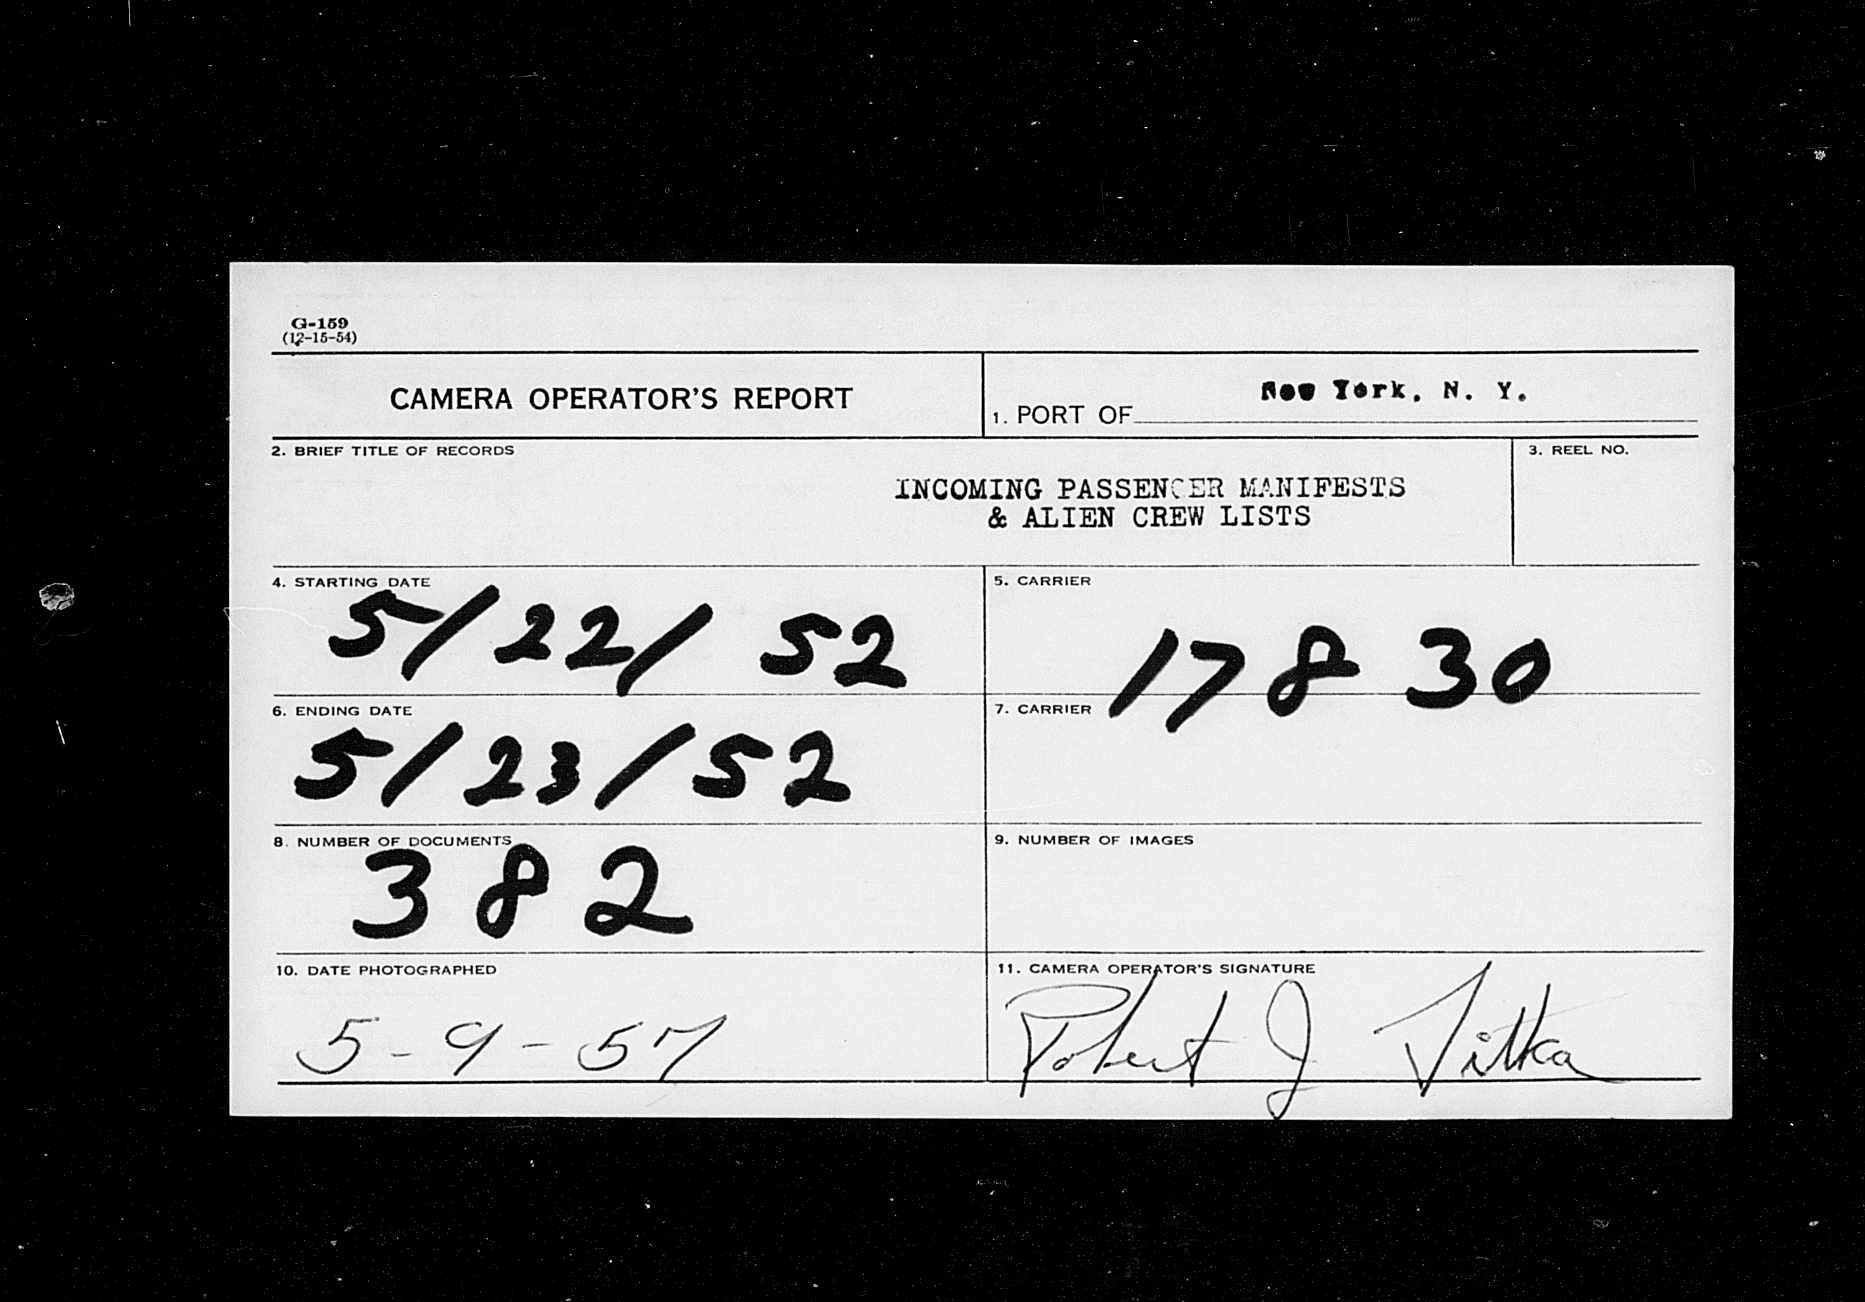 G-159
(12-15-54)
CAMERA OPERATOR'S REPORT
1. PORT OF New York, N. Y.
2. BRIEF TITLE OF RECORDS
INCOMING PASSENGER MANIFESTS
& ALIEN CREW LISTS
3. REEL NO.
4. STARTING DATE
5/22/52
5. CARRIER
17830
6. ENDING DATE
5/23/52
7. CARRIER
8. NUMBER OF DOCUMENTS
382
9. NUMBER OF IMAGES
10. DATE PHOTOGRAPHED
5-9-57
11. CAMERA OPERATOR'S SIGNATURE
Robert J